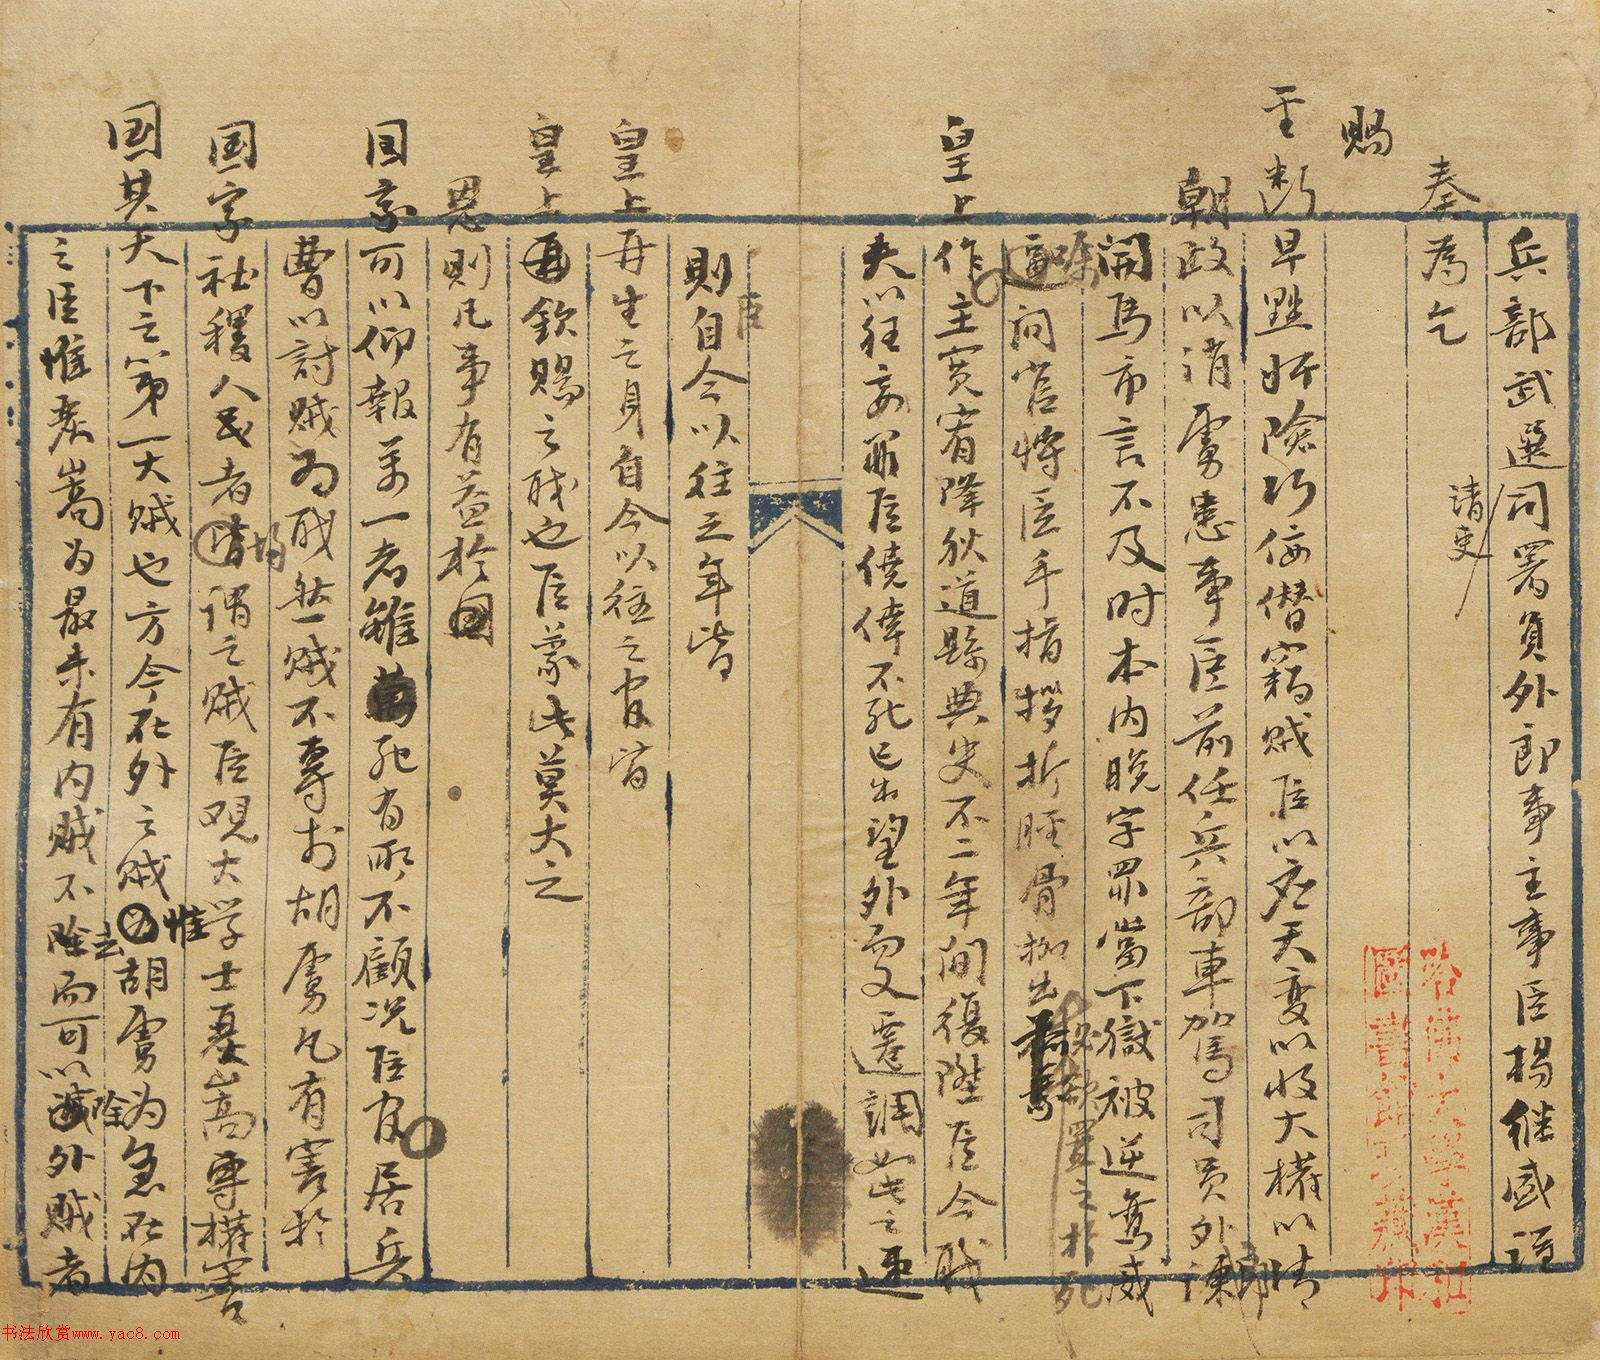 兵部武選司署員外郎事主事臣楊继盛謹
清吏
奏為乞
賜
圣断早黜奸險巧佞僣竊賊臣以应天变以收大權以清
朝政以消虜患事臣前任兵部車駕司員外郎諫
開馬市言不及时本内晚字罪當下獄被逆鸞威
嘱問官将臣手指拶折脛骨夹出必欲置之於死
皇上作主寬宥降狄道縣典史不二年间復陞臣今职
夫以狂妄罪臣僥倖不死已出望外而又遷調如此之速
則自今以往之年皆
臣
皇上再生之身自今以往之官皆
皇上再欽賜之职也臣蒙此莫大之
恩則凡事有益於国
国家可以仰報萬一者雖死有所不顧况臣官居兵
曹以討賊為职然賊不專于胡虜凡有害於
国家社稷人民者均謂之賊臣观大学士严嵩專權害
国其天下之第一大賊也方今在外之賊惟胡虜为急在内
之臣惟严嵩为最未有内賊不去而可以除外賊者
哈佛大學漢和圖書館珍藏印
书法欣赏www.yac8.com